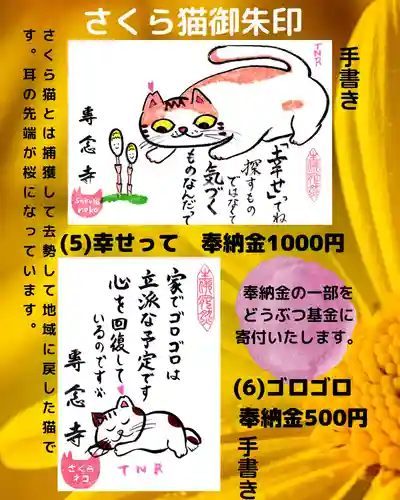 さくら猫御朱印
手書き
さくら猫とは捕獲して去勢して地域に戻した猫で
す。耳の先端が桜になっています。
TNR
「幸せ」ってね
探すもの
ではなくて
気づく
ものなんだって
専念寺
Sakura
neko
(5)幸せって 奉納金1000円
家でゴロゴロは
立派な予定です
心を回復して
いるのです
専念寺
さくら
ネコ
TNR
奉納金の一部を
どうぶつ基金に
寄付いたします。
(6)ゴロゴロ
奉納金500円
手書き